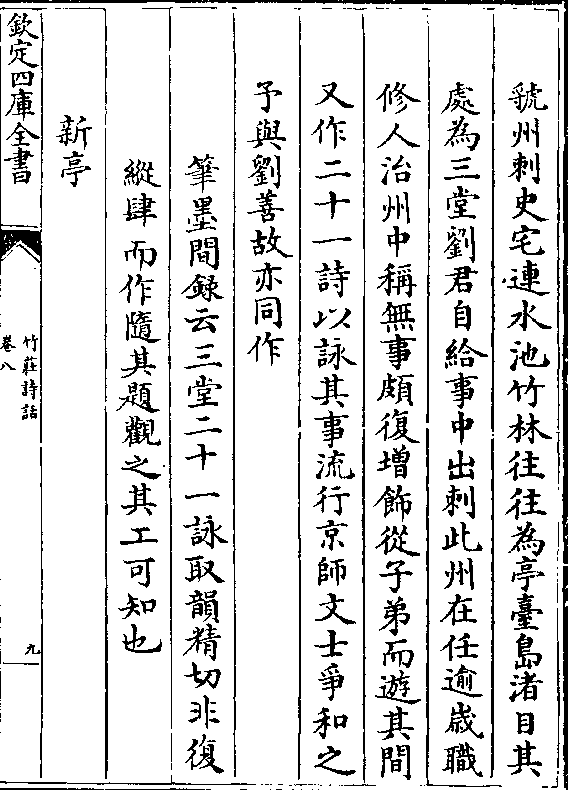 虢州刺史宅連水池竹林往往為亭臺島渚目其
處為三堂劉君自給事中出刺此州在任逾歲職
修人治州中稱無事頗復增飾從子弟而遊其間
又作二十一詩以詠其事流行京師文士爭和之
予與劉善故亦同作
筆墨間録云三堂二十一詠取韻精切非復
縱肆而作隨其題觀之其工可知也
新亭
欽定四庫全書
竹莊詩話
卷八
九